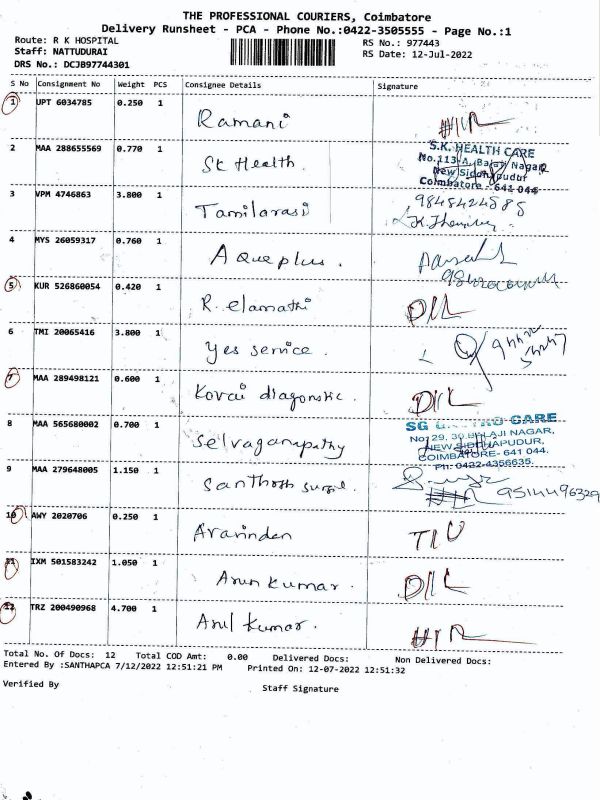 THE PROFESSIONAL COURIERS, Coimbatore
Delivery Runsheet - PCA - Phone No.:0422-3505555 - Page No.:1
Route: R K HOSPITAL RS No.: 977443
Staff: NATTUDURAI RS Date: 12-Jul-2022
DRS No.: DCJB97744301
S No Consignment No Weight PCS Consignee Details Signature
1 UPT 6034785 0.250 1 Ramani
2 MAA 288655569 0.770 1 SK Health. S.K. HEALTH CARE
No.113-A, Balaji Nagar
New Siddhapudur
Coimbatore - 641 044
3 VPM 4746863 3.800 1 Tamilarasi 9845424585
4 MYS 26059317 0.760 1 Aqueplus.
5 KUR 526860054 0.420 1 R. elamathi D/L
6 TMI 20065416 3.800 1 yes service.
7 MAA 289498121 0.600 1 Kovai diagonstic. D/L
8 MAA 565680002 0.700 1 Selvaganapathy SG CARE
No:129, 30 BALAJI NAGAR,
NEW SIDDHAPUDUR,
COIMBATORE- 641 044.
Ph: 0422-4356635.
9 MAA 279648005 1.150 1 Santhosh 9514496329
10 AWY 2020706 0.250 1 Aravinden
11 IXM 501583242 1.050 1 Arun Kumar. D/L
12 TRZ 200490968 4.700 1 Arul Kumar.
Total No. Of Docs: 12 Total COD Amt: 0.00 Delivered Docs: Non Delivered Docs:
Entered By :SANTHAPCA 7/12/2022 12:51:21 PM Printed On: 12-07-2022 12:51:32
Verified By Staff Signature